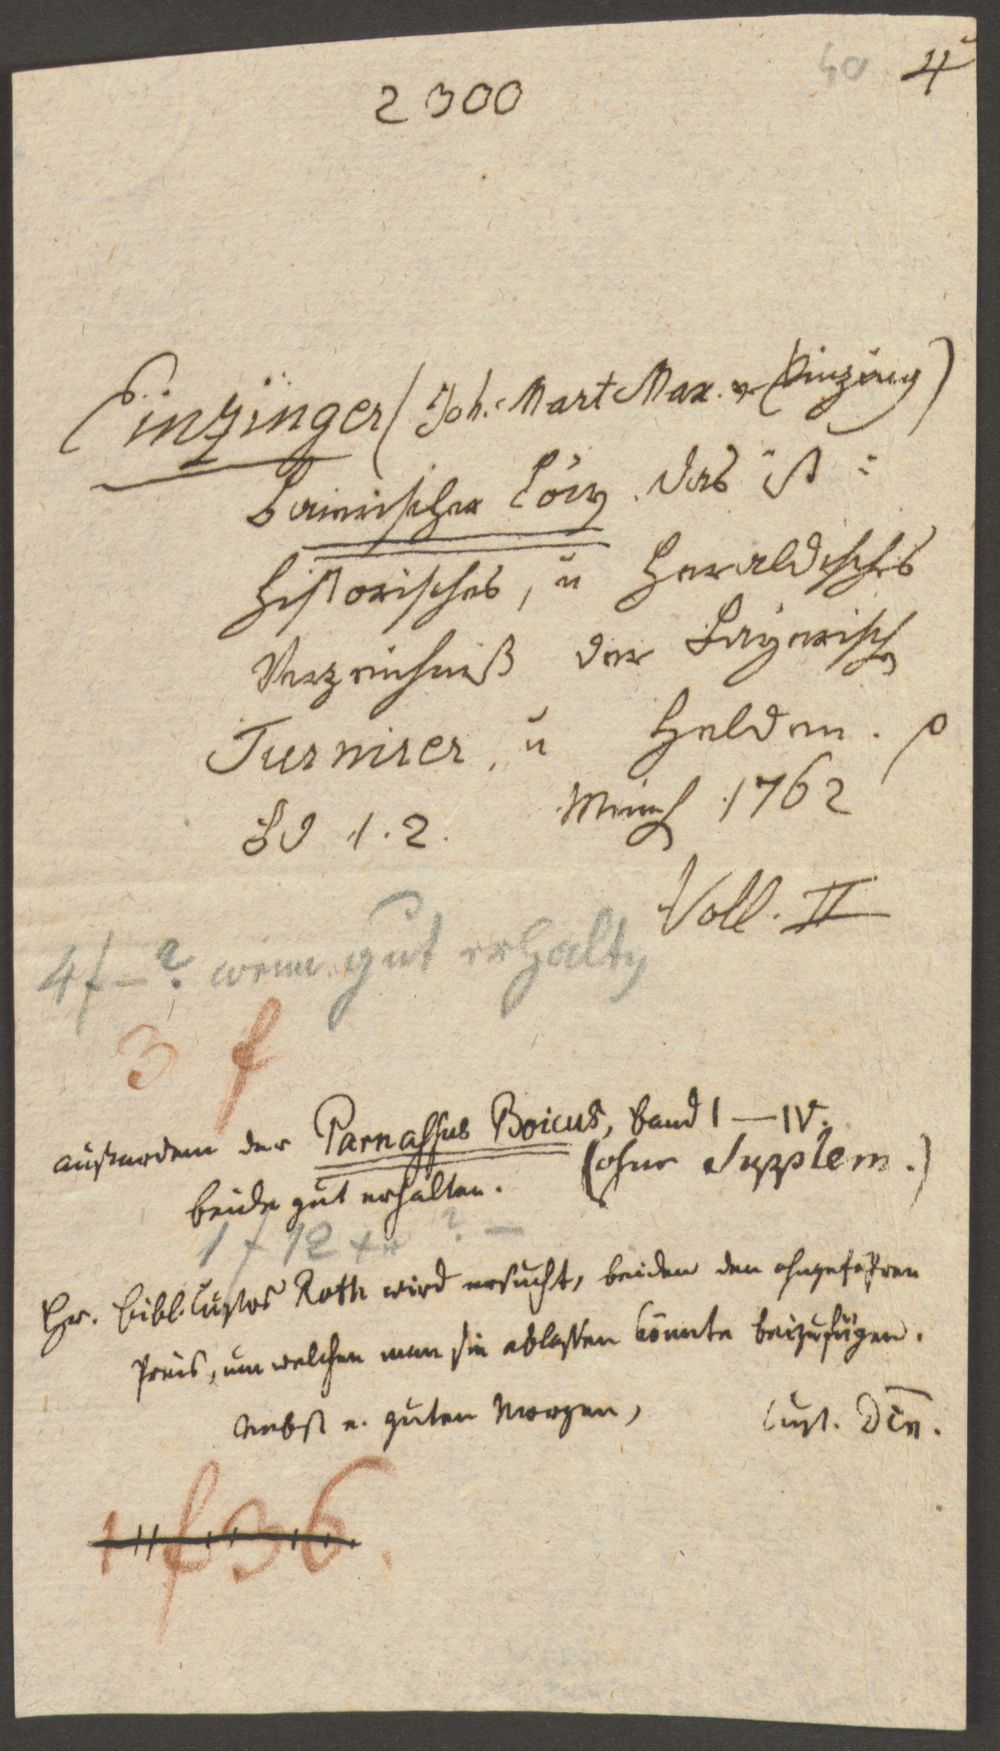 40 4°
2300
Einzinger (Joh. Mart Max. v Einzing)
Baierischer Löw. das ist:
Historisches, u Heraldisches
Verzeichniß der Bayerisch
Turnirer, u Helden. p
Bd 1.2. Münch 1762
Voll. II
4 f – ? wenn gut erhalten
3 f
außerdem der Parnassus Boicus, band I — IV.
(ohne Supplem.)
beide gut erhalten.
1 f 12 xr ? –
Hr. Bibl. Custos Roth wird ersucht, beiden den ohngefähren
Preis, um welchen man sie ablassen könnte beizufügen.
Nebst e. guten Morgen,
Cust.
1 f 36.